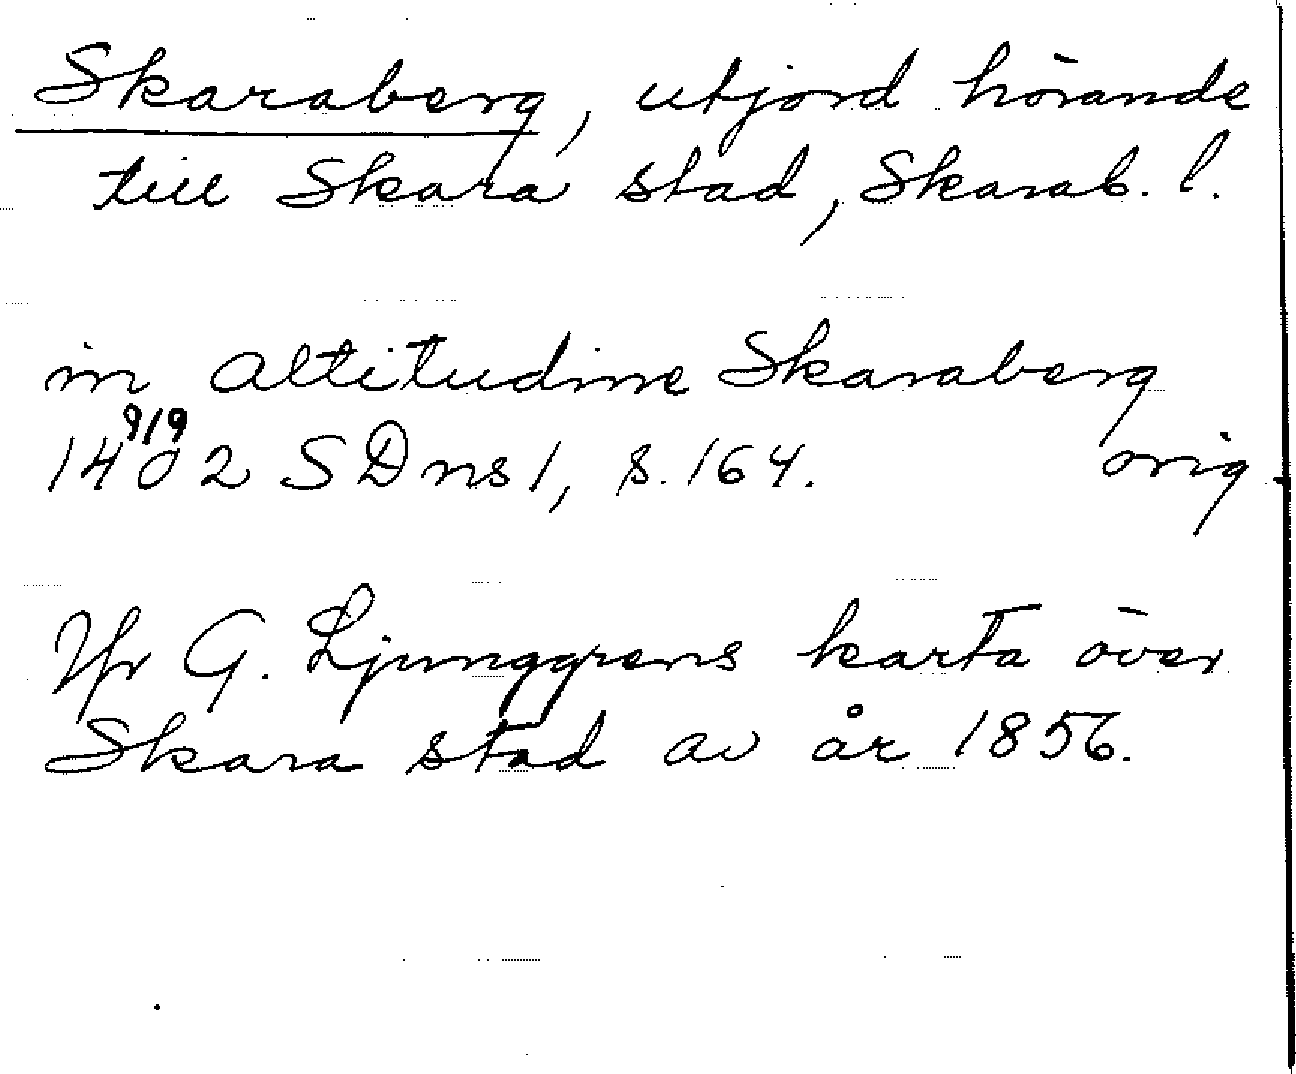 Skaraberg, utjord hörande
till Skara stad, Skarab. l.
in altitudine Skaraberg
1402 9/9 SDns 1, s. 164. orig
Jfr G. Ljunggrens karta över
Skara stad av år 1856.